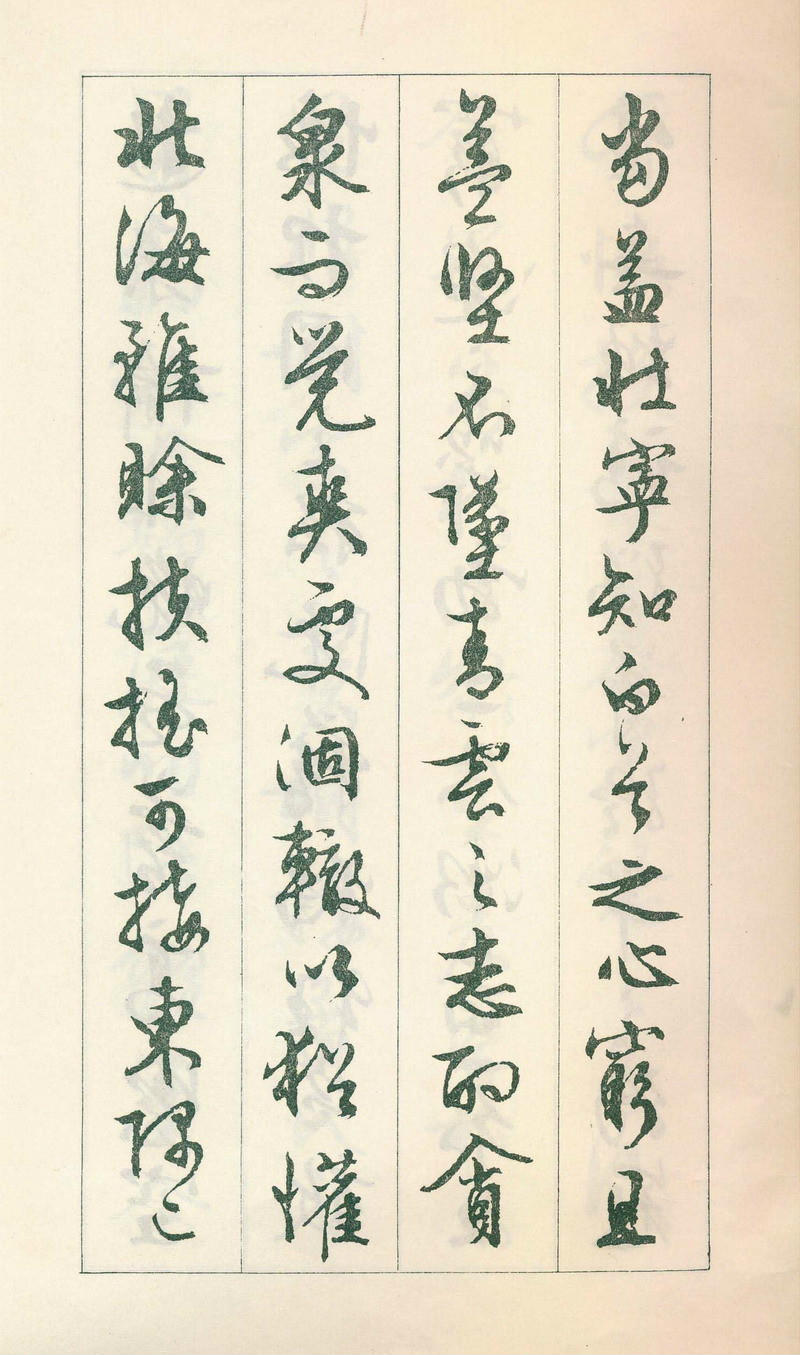 当益壯寧知白首之心窮且
益堅不墜青雲之志酌貪
泉而覺爽處涸轍以猶懽
北海雖賒扶搖可接東隅已